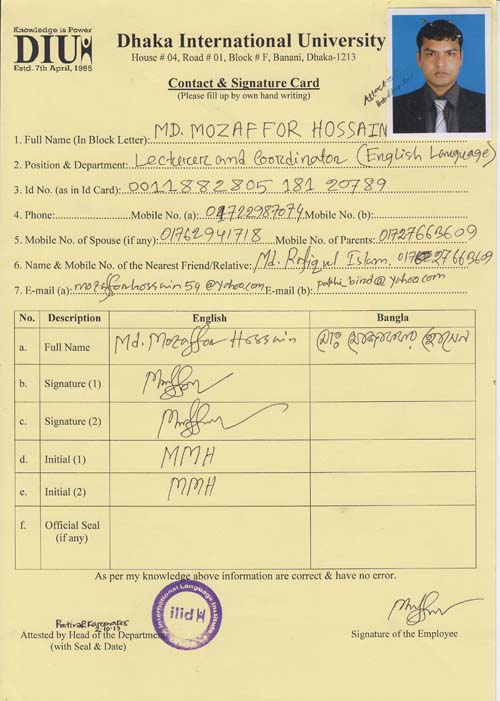 Knowledge is Power
DIU
Estd. 7th April, 1995
Dhaka International University
House # 04, Road # 01, Block # F, Banani, Dhaka-1213
Contact & Signature Card
(Please fill up by own hand writing)
1. Full Name (In Block Letter): MD. MOZAFFOR HOSSAIN
2. Position & Department: Lecturer and Coordinator (English Language)
3. Id No. (as in Id Card): 0011882805 181 20789
4. Phone: Mobile No. (a): 01722987074 Mobile No. (b):
5. Mobile No. of Spouse (if any): 01762941718 Mobile No. of Parents: 01727663609
6. Name & Mobile No. of the Nearest Friend/Relative: Md. Rofiqul Islam, 01727663609
7. E-mail (a): mozafforhossain54@yahoo.com E-mail (b): pakhi_bind@yahoo.com
No. Description English Bangla
a. Full Name Md. Mozaffor Hossain মোঃ মোজাফফার হোসেন
b. Signature (1)
c. Signature (2)
d. Initial (1) MMH
e. Initial (2) MMH
f. Official Seal
(if any)
As per my knowledge above information are correct & have no error.
International Language Institute
ilid
2.10.13
Attested by Head of the Department
(with Seal & Date)
Signature of the Employee